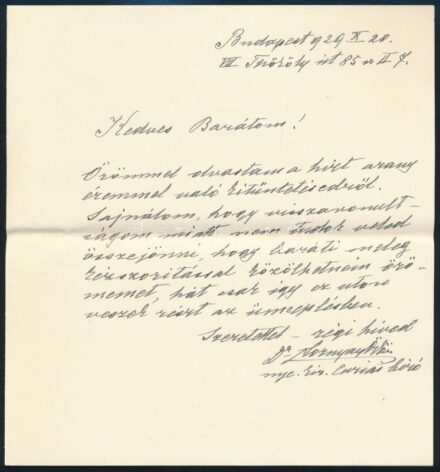 Budapest 929 X 20.
VII Thököly út 85 sz II 7.
Kedves Barátom!
Örömmel olvastam a hírt arany
éremmel való kitüntetésedről.
Sajnálom, hogy visszavonult-
ságom miatt nem tudok veled
összejönni, hogy baráti meleg
kézszorítással közölhetném örö-
memet, hát csak így ez uton
veszek részt az ünneplésben.
Szeretettel – régi hived
Dr
nyc. kir. Curiai bíró